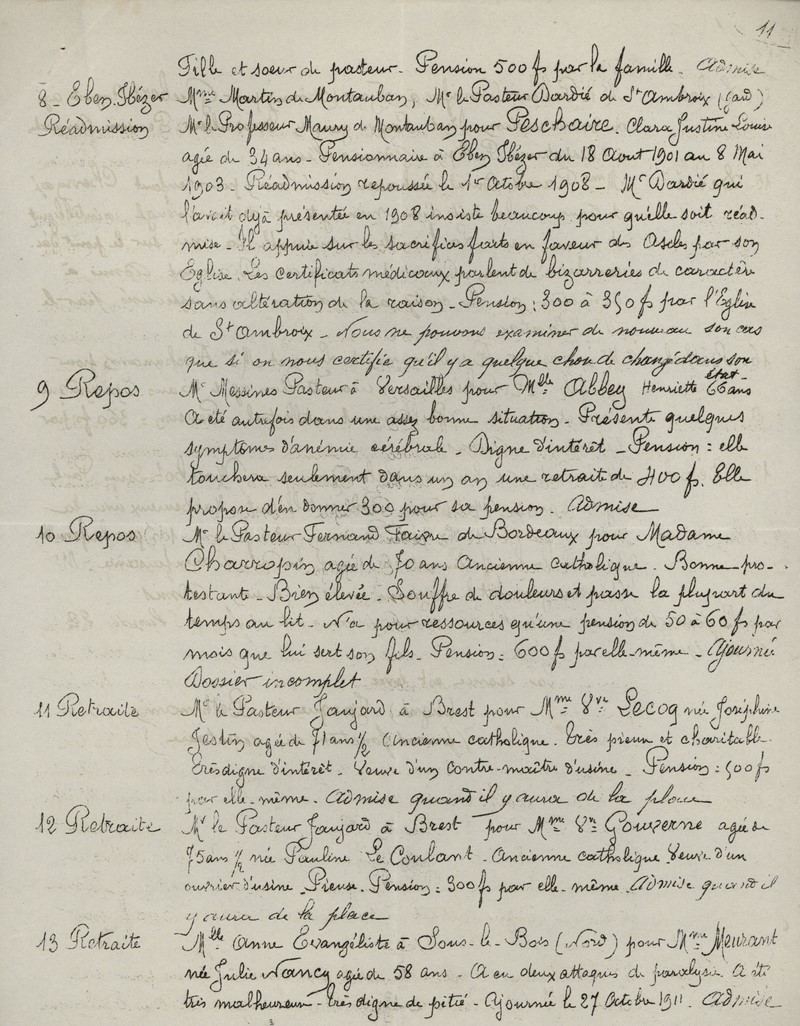 11
Fille et soeur de pasteur - Pension 500 fs par la famille. Admise
8 - Eben. Ibézer Mme Martin de Montauban, Mr le Pasteur Dardié de St Ambroix (Gard)
Réadmission Mr le Professeur Maury de Montauban pour Peschaire. Clara Justine Louise
agée de 34 ans - Pensionnaire à Eben Ibézer du 18 Aout 1901 au 8 Mai
1903 - Réadmission repoussée le 1er Octobre 1908 - Mr Dardié qui
l'avait déjà présentée en 1908 insiste beaucoup pour qu'elle soit réad-
mise - Il appuie sur les sacrifices faits en faveur des Asiles par son
Eglise. Les certificats médicaux parlent de bizarreries de caractère
sans altération de la raison - Pension : 300 à 350 fs par l'Eglise
de St Ambroix - Nous ne pouvons examiner de nouveau son cas
que si on nous certifie qu'il y a quelque chose de changé dans son
état -
9 Repos Mr Messines Pasteur à Versailles pour Mlle Abbey Henriette 66 ans
A été autrefois dans une assez bonne situation - Présente quelques
symptomes d'anémie cérébrale - Digne d'intérêt - Pension : elle
touchera seulement dans un an une retraite de 400 fs. Elle
propose d'en donner 300 pour sa pension. Admise
10 Repos Mr le Pasteur Fernand Faivre de Bordeaux pour Madame
Charropin agée de 70 ans Ancienne catholique. Bonne pro-
testante - Bien élevée - Souffre de douleurs et passe la plupart du
temps au lit - N'a pour ressources qu'une pension de 50 à 60 fs par
mois que lui sert son fils - Pension : 600 fs par elle-même - Ajournée
Dossier incomplet
11 Retraite Mr le Pasteur Jaujard à Brest pour Mme Vve Lecoq née Joséphine
Jestin agée de 71 ans 1/2 Ancienne catholique. Très pieuse et charitable.
Très digne d'intérêt - Veuve d'un contre-maître d'usine - Pension : 500 fs
par elle-même. Admise quand il y aura de la place
12 Retraite Mr le Pasteur Jaujard à Brest pour Mme Vve Gouzerne agée de
75 ans 1/2 née Pauline Le Coulant - Ancienne catholique Veuve d'un
ouvrier d'usine. Pieuse. Pension : 300 fs par elle-même. Admise quand il
y aura de la place
13 Retraite Mlle Anne Evangéliste à Sous-le-Bois (Nord) pour Mme Meurant
née Julie Nancy agée de 58 ans - A eu deux attaques de paralysie. A été
très malheureuse - très digne de pitié - Ajournée le 27 Octobre 1911 - Admise